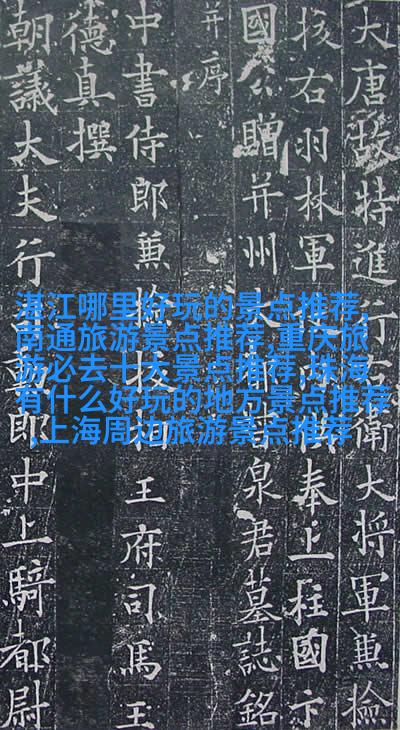 大唐故特進行衛大將軍兼檢
校右羽林軍奉上柱國卞
國公贈并州大泉君墓誌銘
并序
中書侍郎兼檢校相王府司馬王
德真撰
朝議大夫行司勳郎中上騎都尉
湛江哪里好玩的景点推荐,
南通旅游景点推荐,重庆旅
游必去十大景点推荐,珠海
有什么好玩的地方景点推荐
,上海周边旅游景点推荐